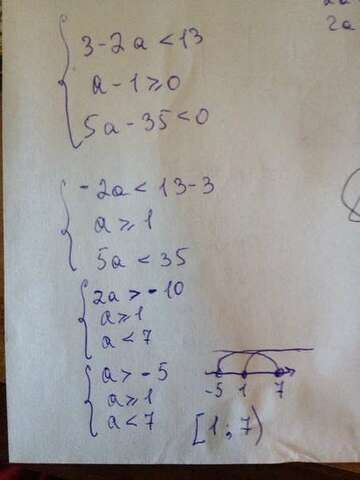 2a
3 - 2a < 13
a - 1 ⩾ 0
5a - 35 < 0
-2a < 13 - 3
a ⩾ 1
5a < 35
2a > -10
a ⩾ 1
a < 7
a > -5
a ⩾ 1
a < 7
-5 1 7
[1; 7)